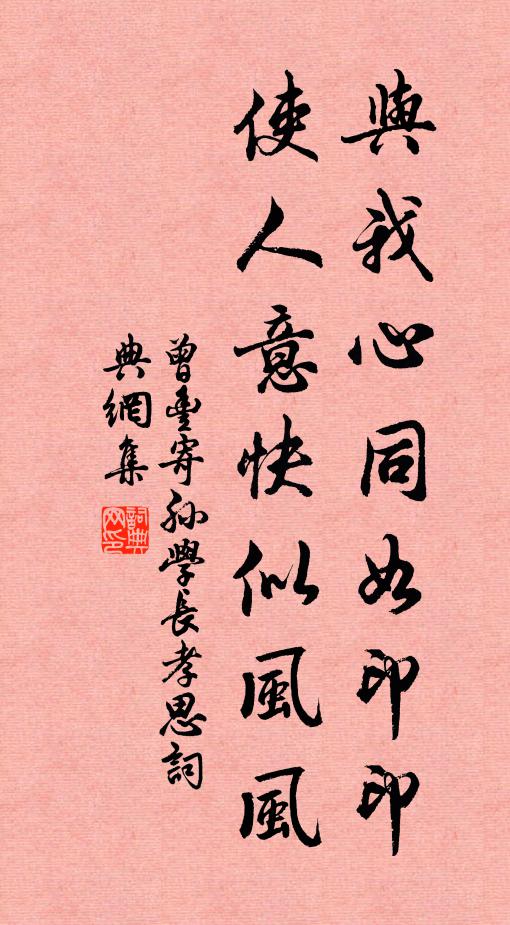 與我心同如印印
使人意快似風風
曾豐寄孙學長孝思詞
典網集
詞典
网印